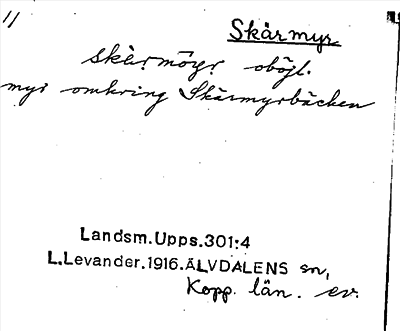 11
Skärmyr
skärmöyr oböjl.
myr omkring Skärmyrbäcken
Landsm.Upps.301:4
L.Levander.1916.ÄLVDALENS sn,
Kopp. län. ev.